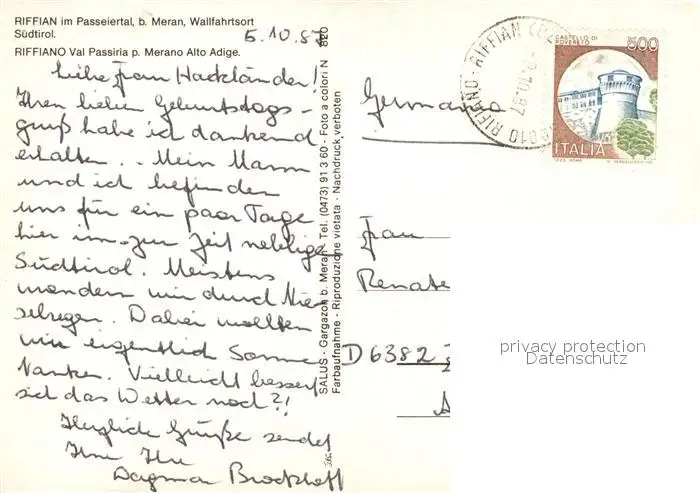 RIFFIAN im Passeiertal, b. Meran, Wallfahrtsort
Südtirol.
RIFFIANO Val Passiria p. Merano Alto Adige.
5.10.87
Liebe Frau Hackländer!
Ihren lieben Geburtstags-
gruß habe ich dankend
erhalten. - Mein Mann
und ich befinden
uns für ein paar Tage
hier im zur Zeit nebligen
Südtirol. Meistens
wandern wir durch Nie-
selregen. Dabei wollten
wir eigentlich Sonne
tanken. Vielleicht bessert
sich das Wetter noch?!
Herzliche Grüße sendet
Ihnen Ihre
Dagmar Brockhoff
SALUS - Gargazon b. Meran - Tel. (0473) 91 3 60 - Foto a colori N 820
Farbaufnahme - Riproduzione vietata - Nachdruck verboten
RIFIANO - RIFFIAN
10.87
CASTELLO DI
ROVERETO
500
ITALIA
Germania
Frau
Renate
D 6382
privacy protection
Datenschutz